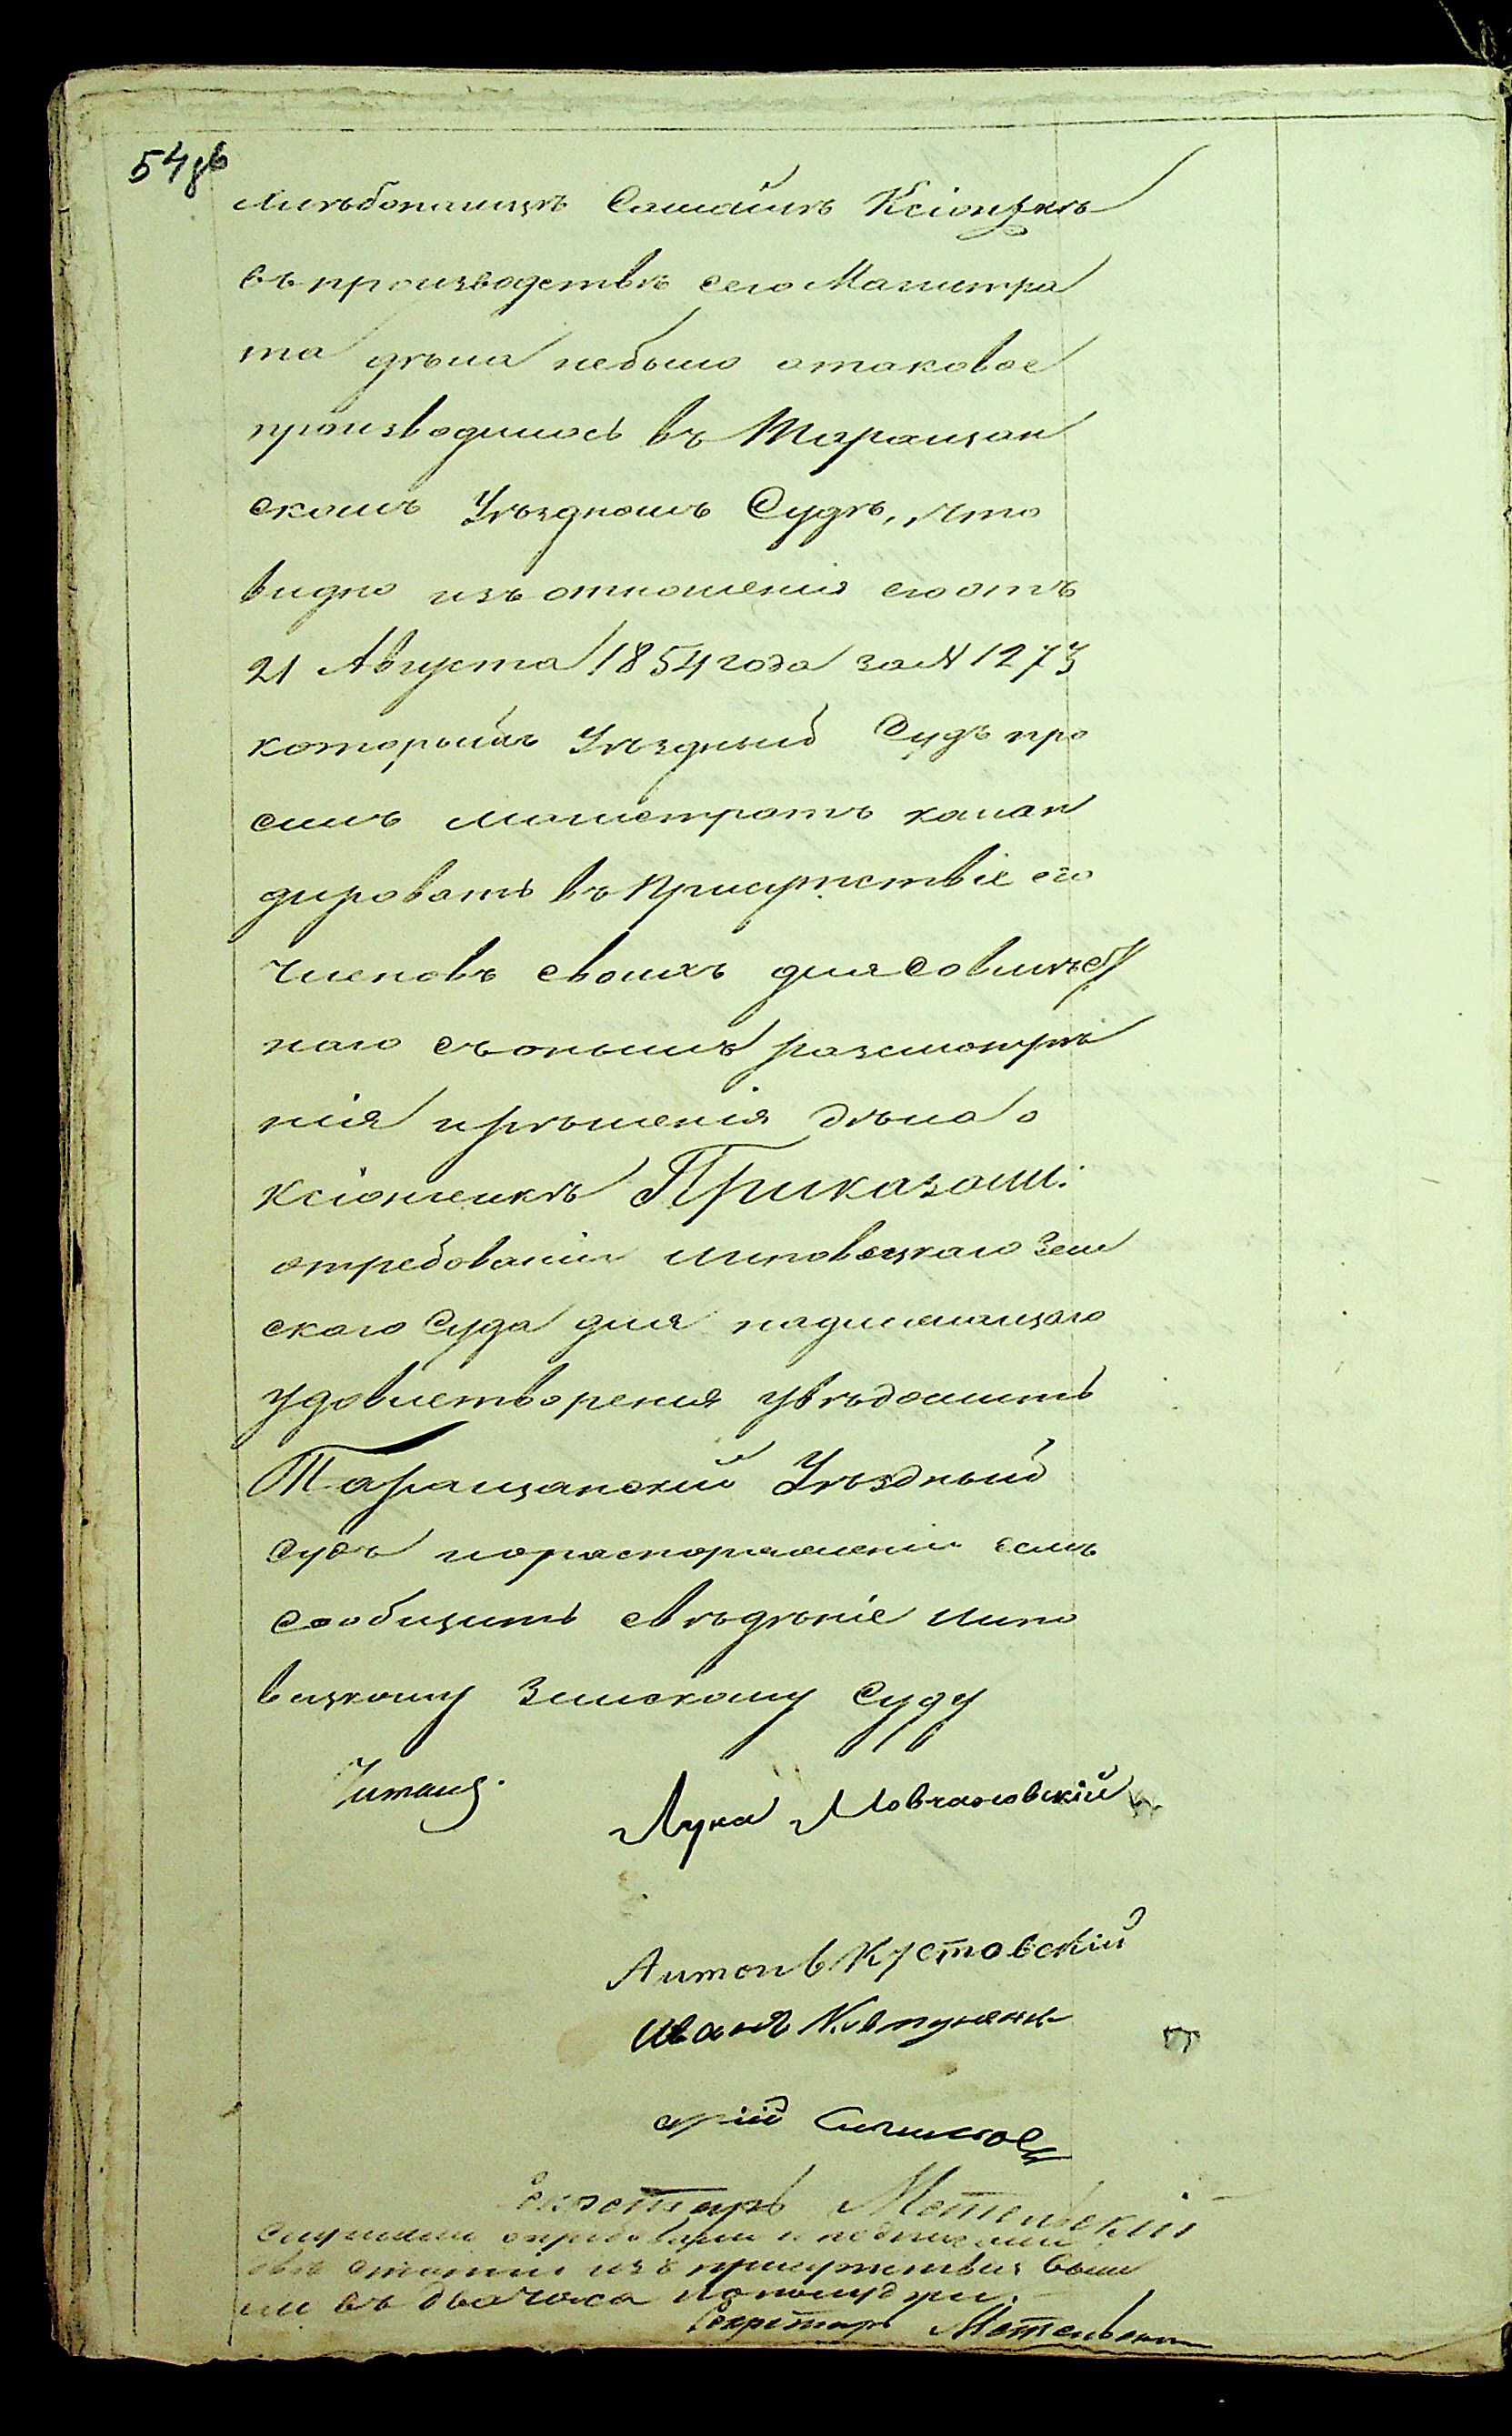 54 об
хлѣбопашцѣ Самойлѣ Ксіонзкѣ
въ производствѣ сего Магистра
та дѣла небыло атаковое
производилось въ Таращан
скомъ Уѣздномъ Судѣ, что
видно изъ отношенія его отъ
21 Августа 1854 года за N 1273
которымъ Уѣздный Судъ про
силъ магистратъ коман
дировать въ присутствіе его
членовъ своихъ для совмѣст
наго съ онымъ разсмотрѣ
нія ирѣшенія дѣла о
Ксіонжкѣ Приказали:
отребованіи Липовецкаго Зем
скаго Суда для надлежащаго
удовлетворенія увѣдомить
Таращанскій Уѣздный
Судъ ораспоряженіи семъ
сообщить свѣдѣніе Липо
вецкому Земскому Суду
Читалъ
Лука Мовчановскій
Антонъ Кустовскій
Иванъ Ковтуненко
Секретарь Метельскій
Слушали опредѣлили и подписали
двѣ статьи изъ присутствія вышли
въ два часа пополудни.
Секретарь Метельскій